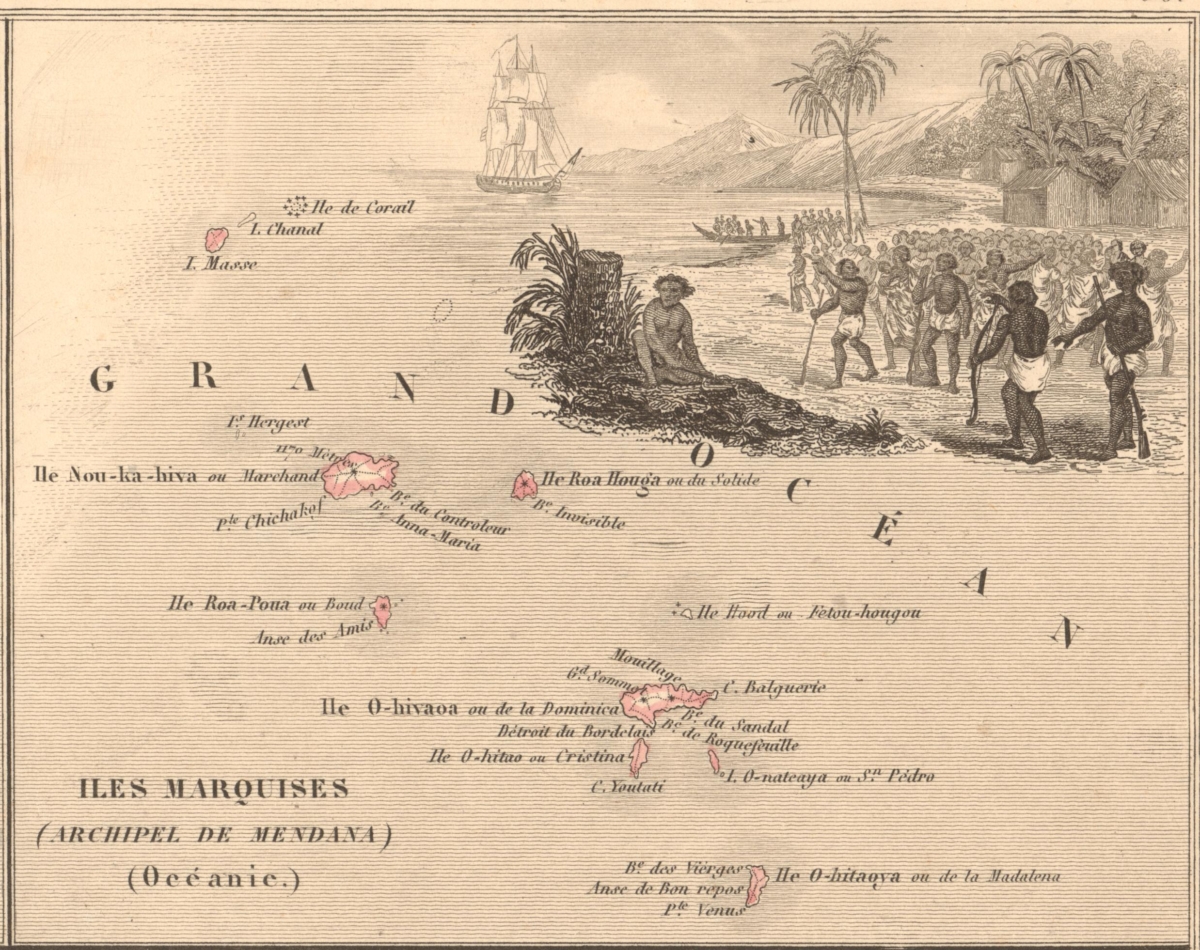 Ile de Corail
I. Chanal
I. Masse
GRAND OCÉAN
I.s Hergest
1170 Mètres
Ile Nou-ka-hiva ou Marchand
P.te Chichakof
B.e du Controleur
B.e Anna-Maria
Ile Roa Houga ou du Solide
B.e Invisible
Ile Roa-Poua ou Boud
Anse des Amis
Ile Hood ou Fetou-hougou
Mouillage
G.d Sommet
C. Balguerie
Ile O-hivaoa ou de la Dominica
B.e du Sandal
B.e de Roquefeuille
Détroit du Bordelais
Ile O-hitao ou Cristina
C. Youtati
I. O-nateaya ou S.n Pédro
ILES MARQUISES
(ARCHIPEL DE MENDANA)
(Océanie.)
B.e des Viérges
Anse de Bon repos
P.te Venus
Ile O-hitaoya ou de la Madalena